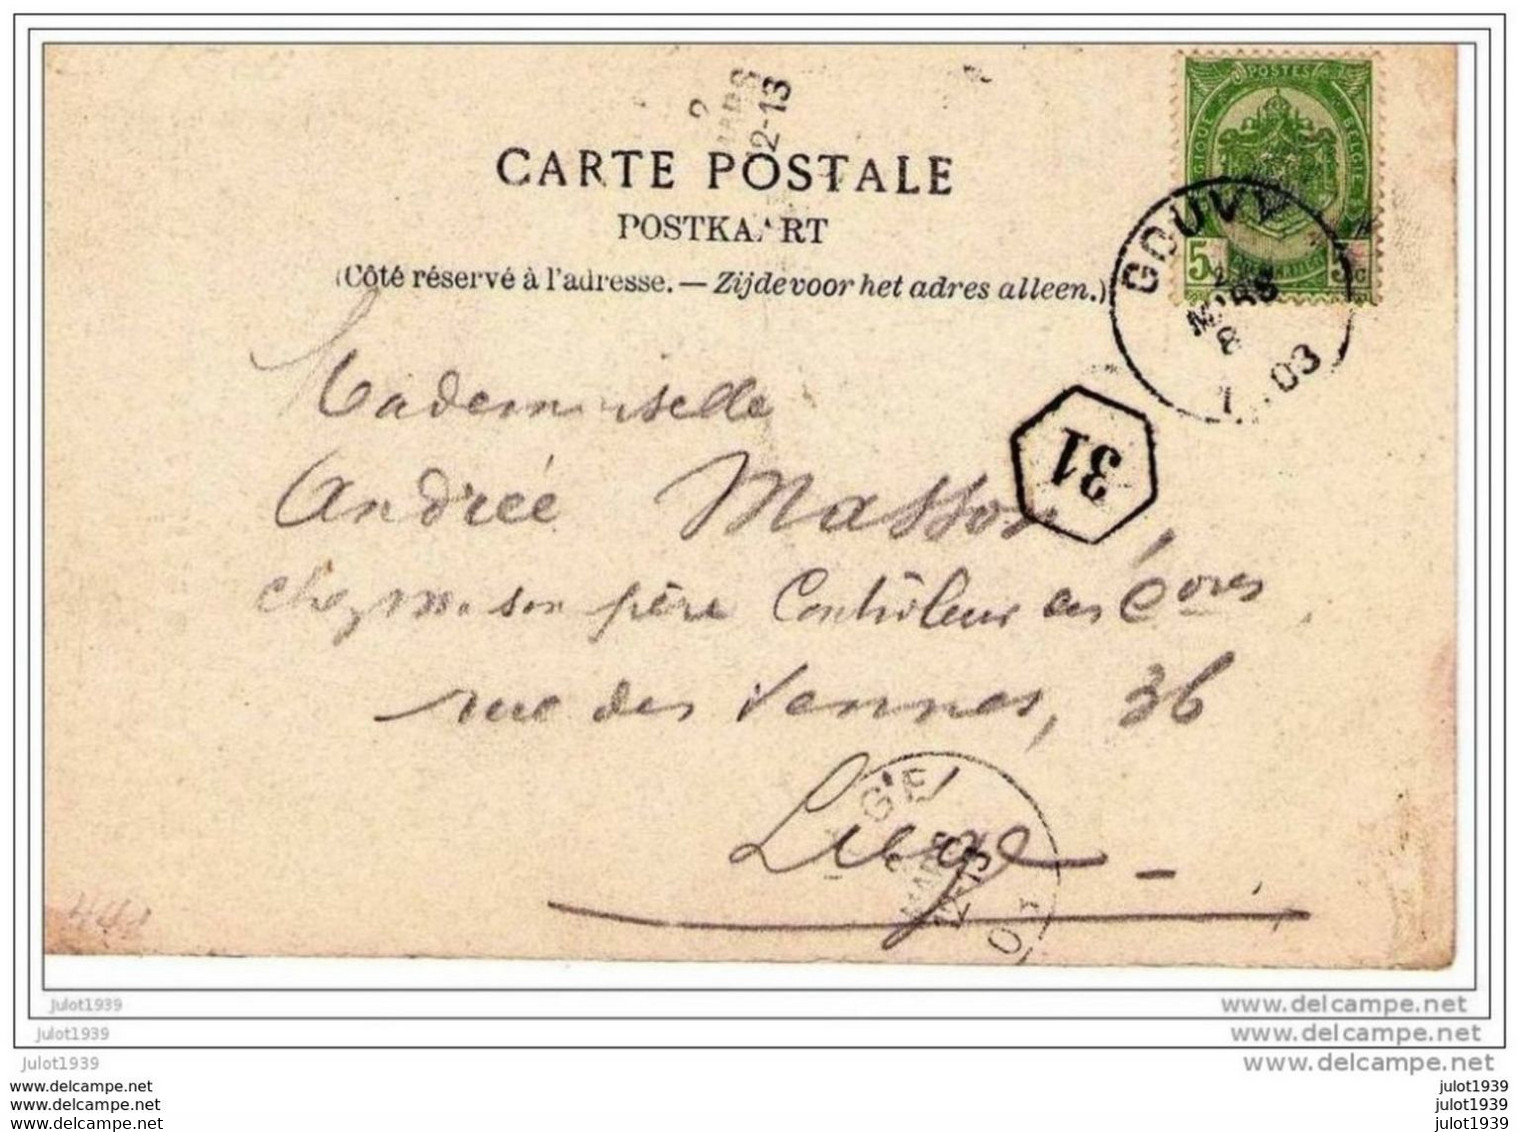 2
MARS
12-13
CARTE POSTALE
POSTKAART
(Côté réservé à l'adresse. — Zijde voor het adres alleen.)
POSTES
BELGIQUE BELGIE
5 5c
GOUVY
MARS
8
03
31
Mademoiselle
Andrée Masson,
chez M. son père Contrôleur des Cons
rue des Vennes, 36
Liège
MARS
12-13
441
julot1939 www.delcampe.net
julot1939 www.delcampe.net
julot1939 www.delcampe.net
www.delcampe.net julot1939
www.delcampe.net julot1939
www.delcampe.net julot1939